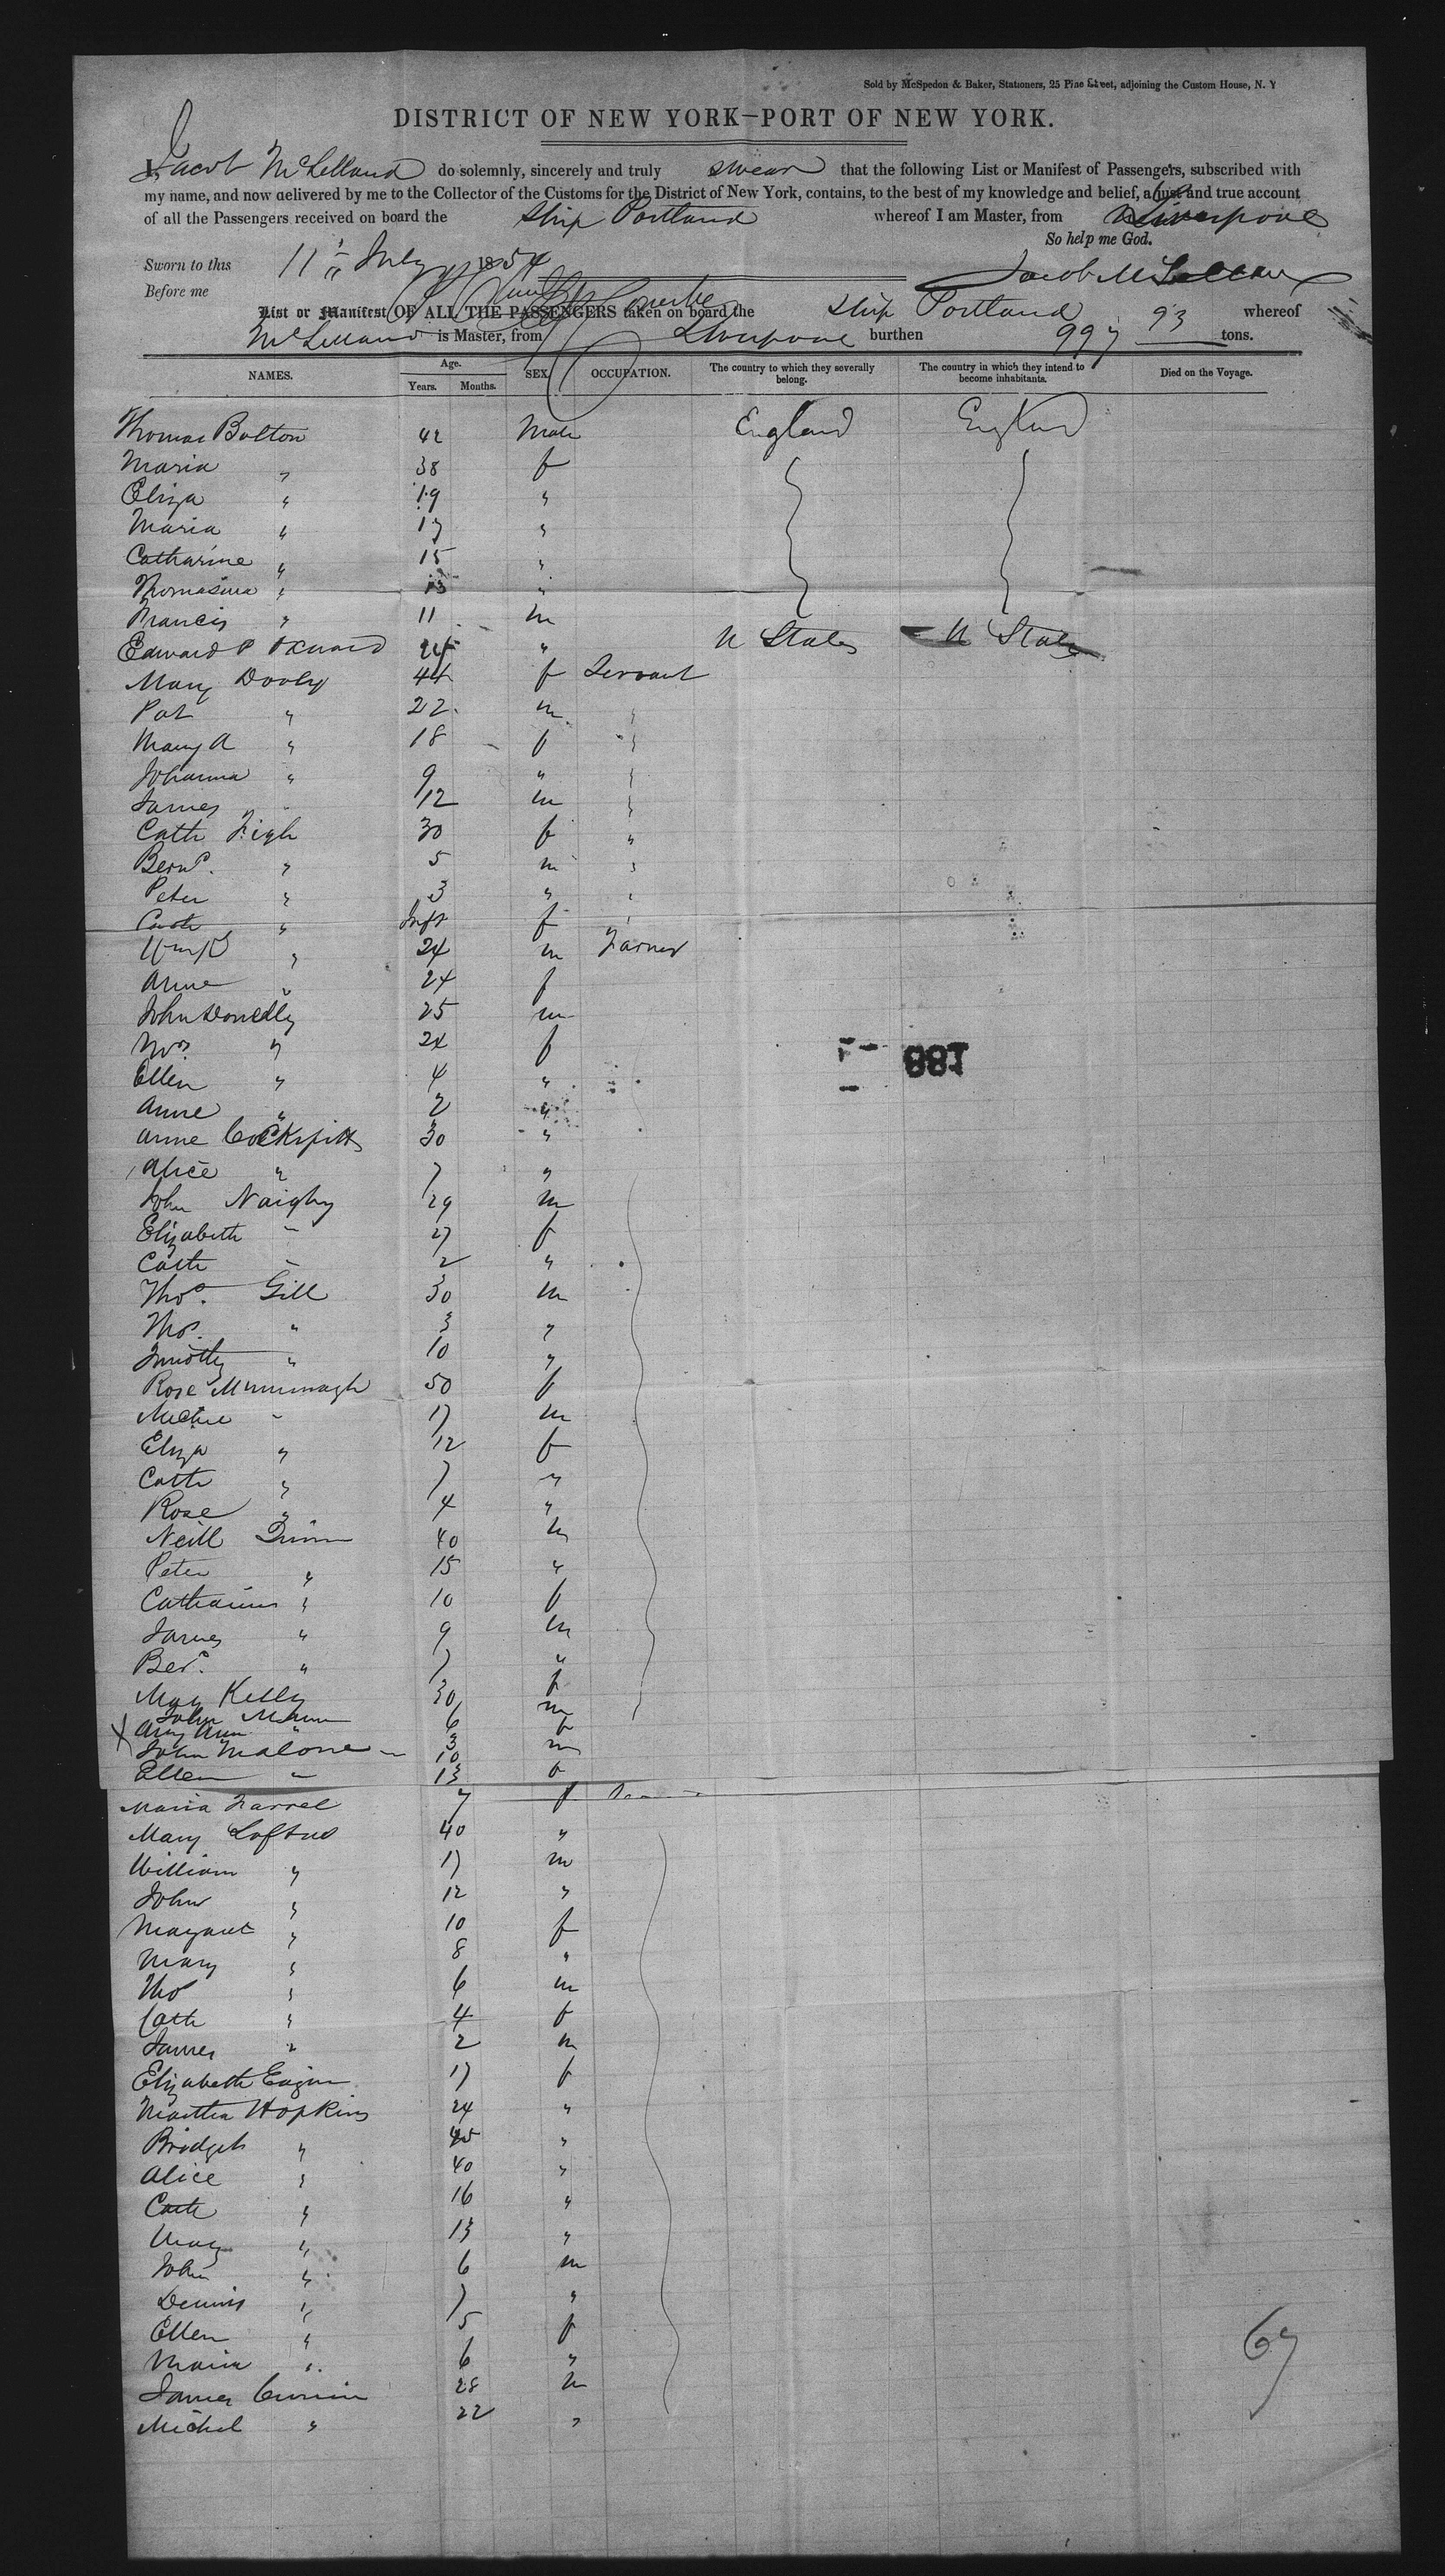 Sold by McSpedon & Baker, Stationers, 25 Pine Street, adjoining the Custom House, N. Y
DISTRICT OF NEW YORK—PORT OF NEW YORK.
I, Jacob McLelland do solemnly, sincerely and truly swear that the following List or Manifest of Passengers, subscribed with
my name, and now delivered by me to the Collector of the Customs for the District of New York, contains, to the best of my knowledge and belief, a just and true account
of all the Passengers received on board the Ship Portland whereof I am Master, from Liverpool
So help me God.
Sworn to this 11th July 1854
Jacob McLellan
Before me
List or Manifest OF ALL THE PASSENGERS taken on board the Ship Portland whereof
McLelland is Master, from Liverpool burthen 997 93 tons.
NAMES. Age. Years. Months. SEX. OCCUPATION. The country to which they severally belong. The country in which they intend to become inhabitants. Died on the Voyage.
Thomas Bolton 42 Male England England
Maria " 38 f
Eliza " 19 "
Maria " 17 "
Catharine " 15 "
Thomasina " 13 "
Francis " 11 m
Edward P 24 " U States U States
Mary Dooly 44 f Servant
Pat " 22 m "
Mary A " 18 f "
Johanna " 9 " "
James " 9/12 m "
Cath 30 f "
Bernd. " 5 m "
Peter " 3 " "
Cath " Inft f "
" 24 m Farmer
Anne " 24 f
John Donnelly 25 m
Mrs. " 24 f
Ellen " 4 "
Anne " 2 "
Anne 30 "
Alice " 7 "
John Naighy 29 m
Elizabeth " 27 f
Cath " 2 "
Thos. Gill 30 m
Thos. " 3 "
Timothy " 10 "
Rose 50 f
" 17 m
Eliza " 12 f
Cath " 7 "
Rose " 4 "
Neill Quinn 40 m
Peter " 15 "
Catharine " 10 f
James " 9 m
Ber. " 7 "
Mary Kelly 30 f
John 6 m
Ann " 3 f
John Malone 10 m
Ellen " 13 f
Maria Farrel 7 f
Mary Loftus 40 "
William " 17 m
John " 12 "
Margaret " 10 f
Mary " 8 "
Tho " 6 m
Cath " 4 f
James " 2 m
Elizabeth 17 f
Martha Hopkins 24 "
Bridget " 45 "
Alice " 40 "
Cath " 16 "
Mary " 13 "
John " 6 m
Dennis " 7 "
Ellen " 5 f
Maria " 6 "
James 28 m
Michel " 22 "
67